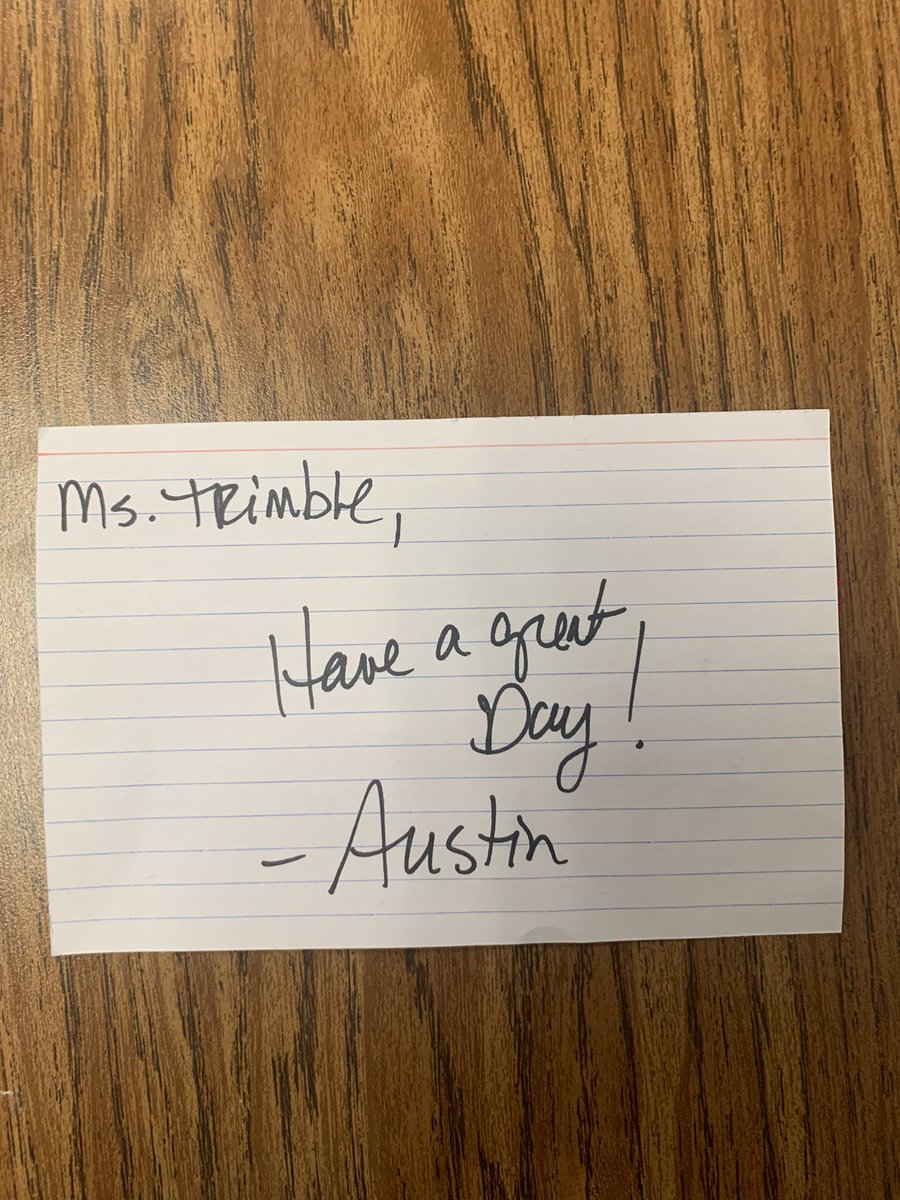 Ms. Trimble,
Have a great
Day!
- Austin